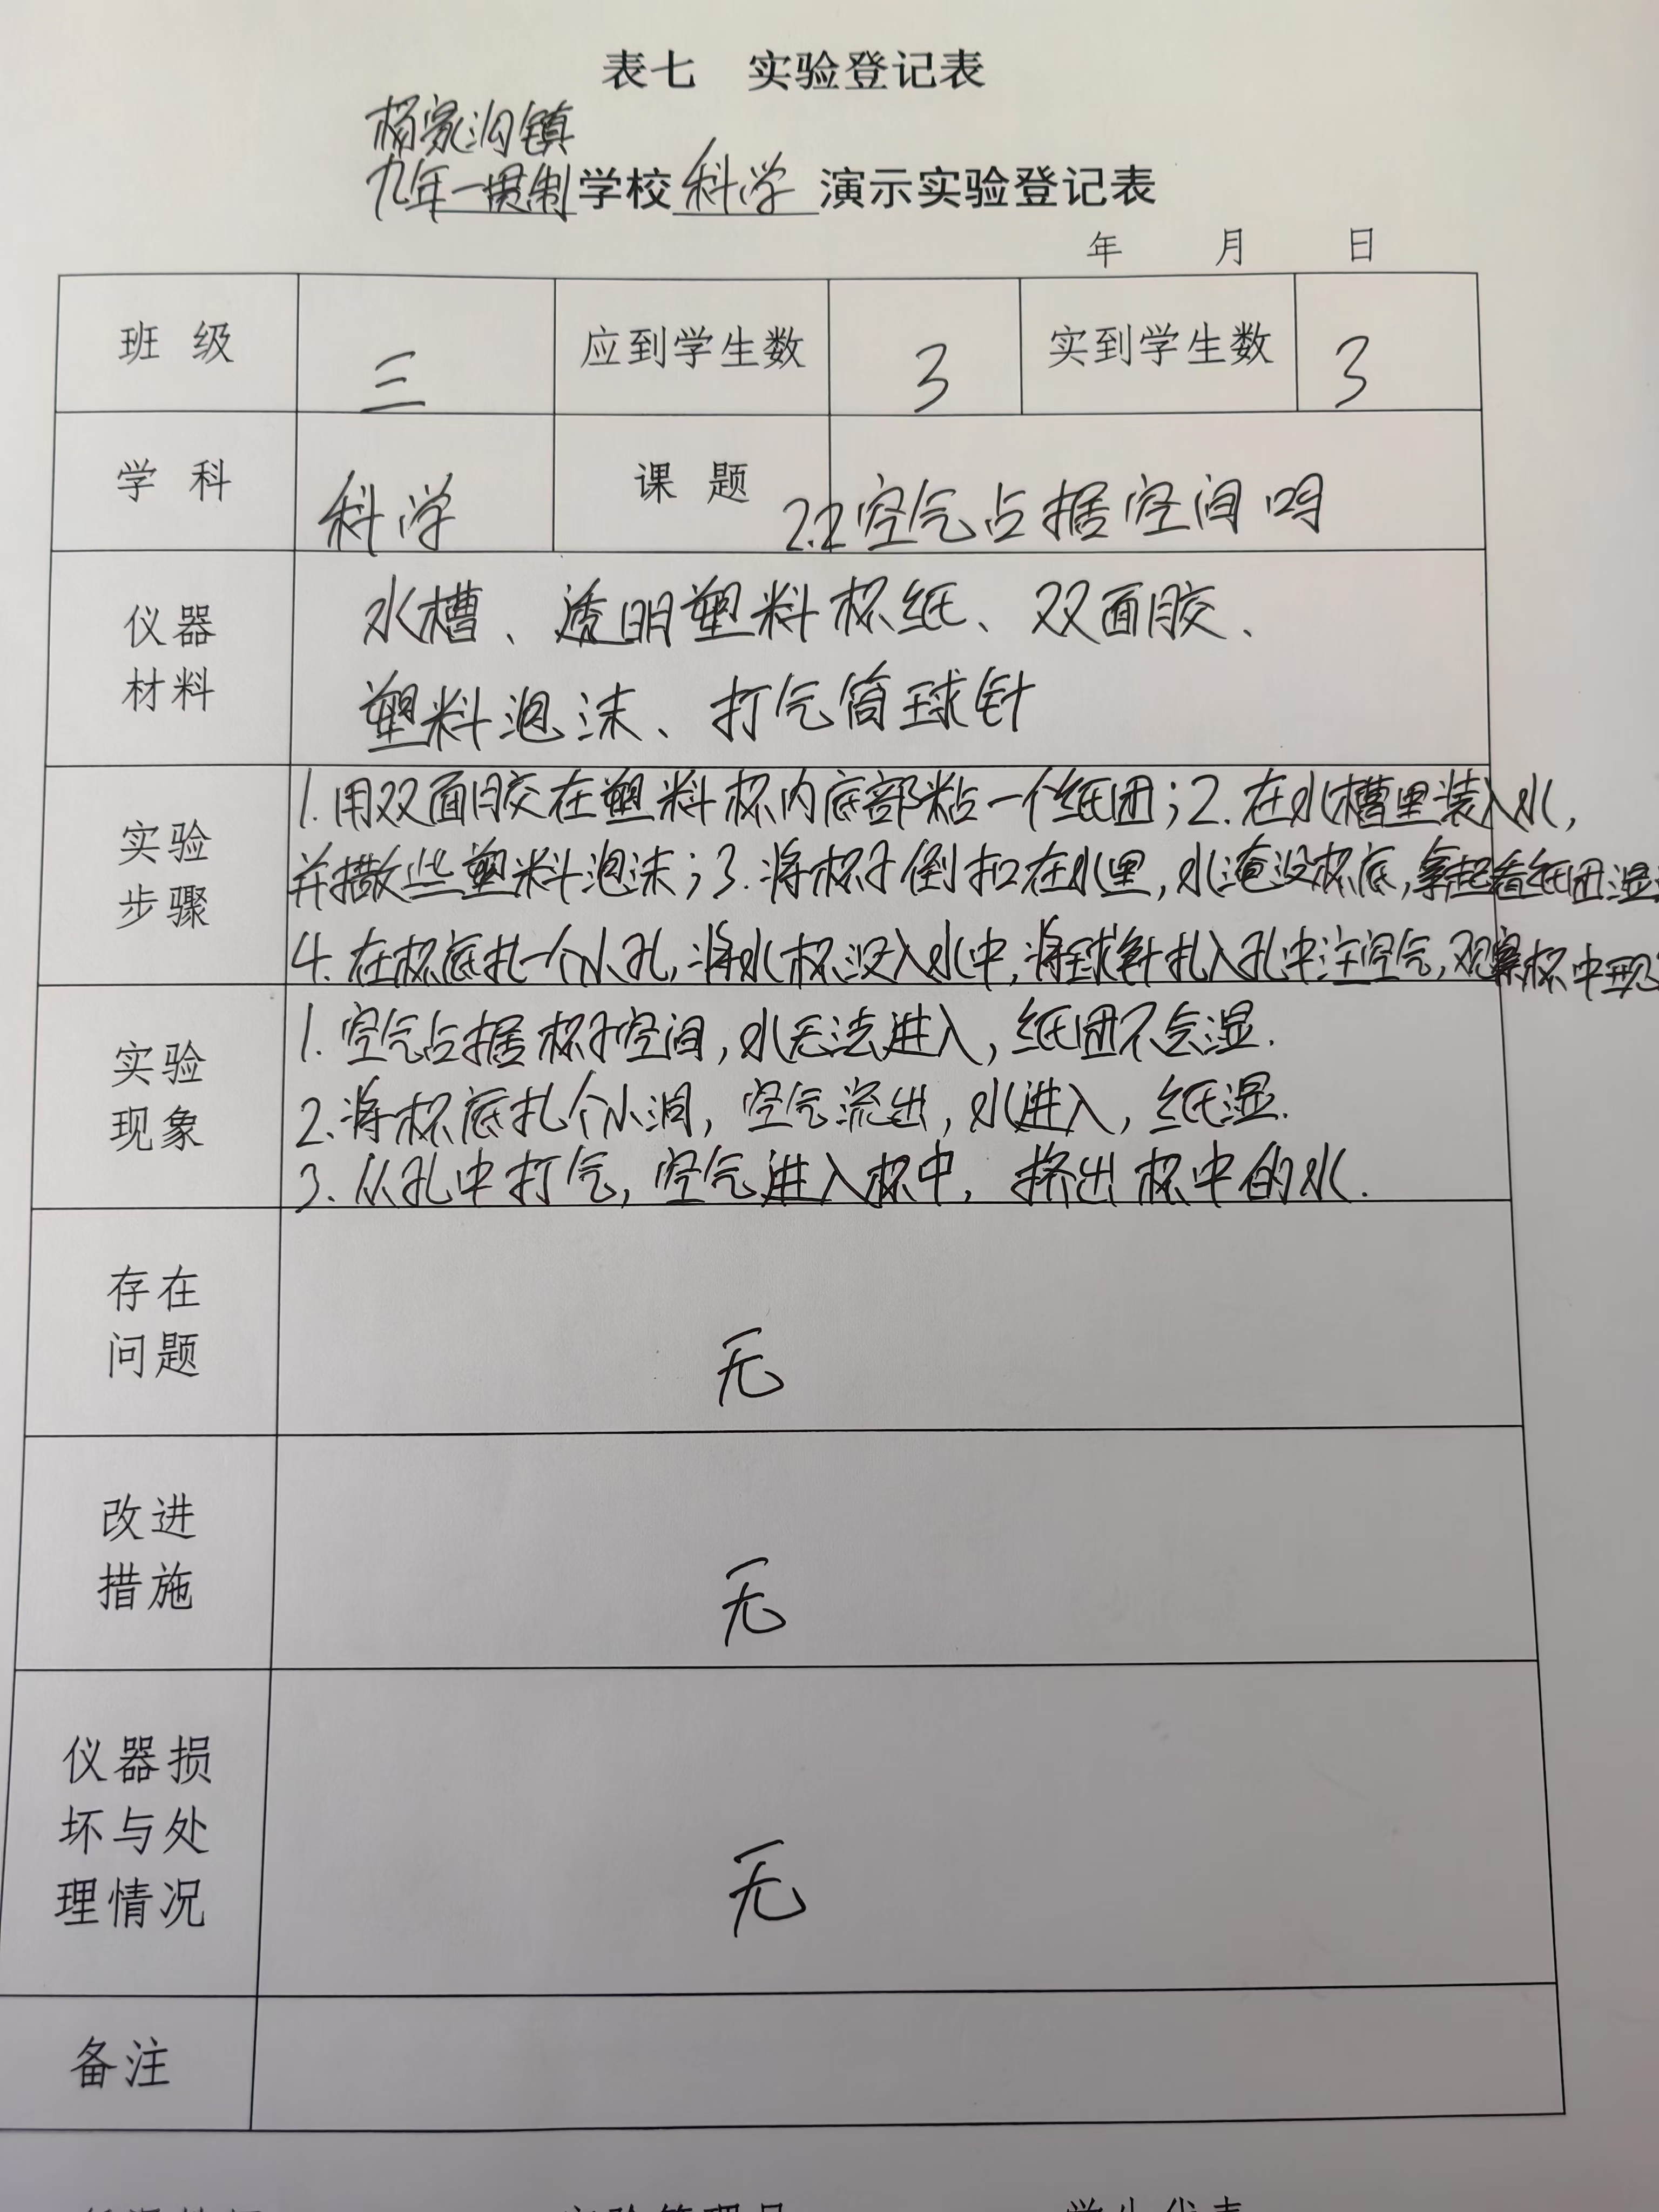 表七 实验登记表
杨家沟镇
九年一贯制学校科学演示实验登记表
年 月 日
班 级 三 应到学生数 3 实到学生数 3
学 科 科学 课 题 2.2空气占据空间吗
仪器
材料
水槽、透明塑料杯纸、双面胶、
塑料泡沫、打气筒球针
实验
步骤
1.用双面胶在塑料杯内底部粘一个纸团;2.在水槽里装入水,
并撒些塑料泡沫;3.将杯子倒扣在水里,水淹没杯底,拿起看纸团湿
4.在杯底扎一个小孔,将水杯没入水中,将球针扎入孔中注空气,观察杯中现
实验
现象
1.空气占据杯子空间,水无法进入,纸团不会湿.
2.将杯底扎个小洞,空气流出,水进入,纸湿.
3.从孔中打气,空气进入杯中,挤出杯中的水.
存在
问题
无
改进
措施
无
仪器损
坏与处
理情况
无
备注
实验管理员 学生代表